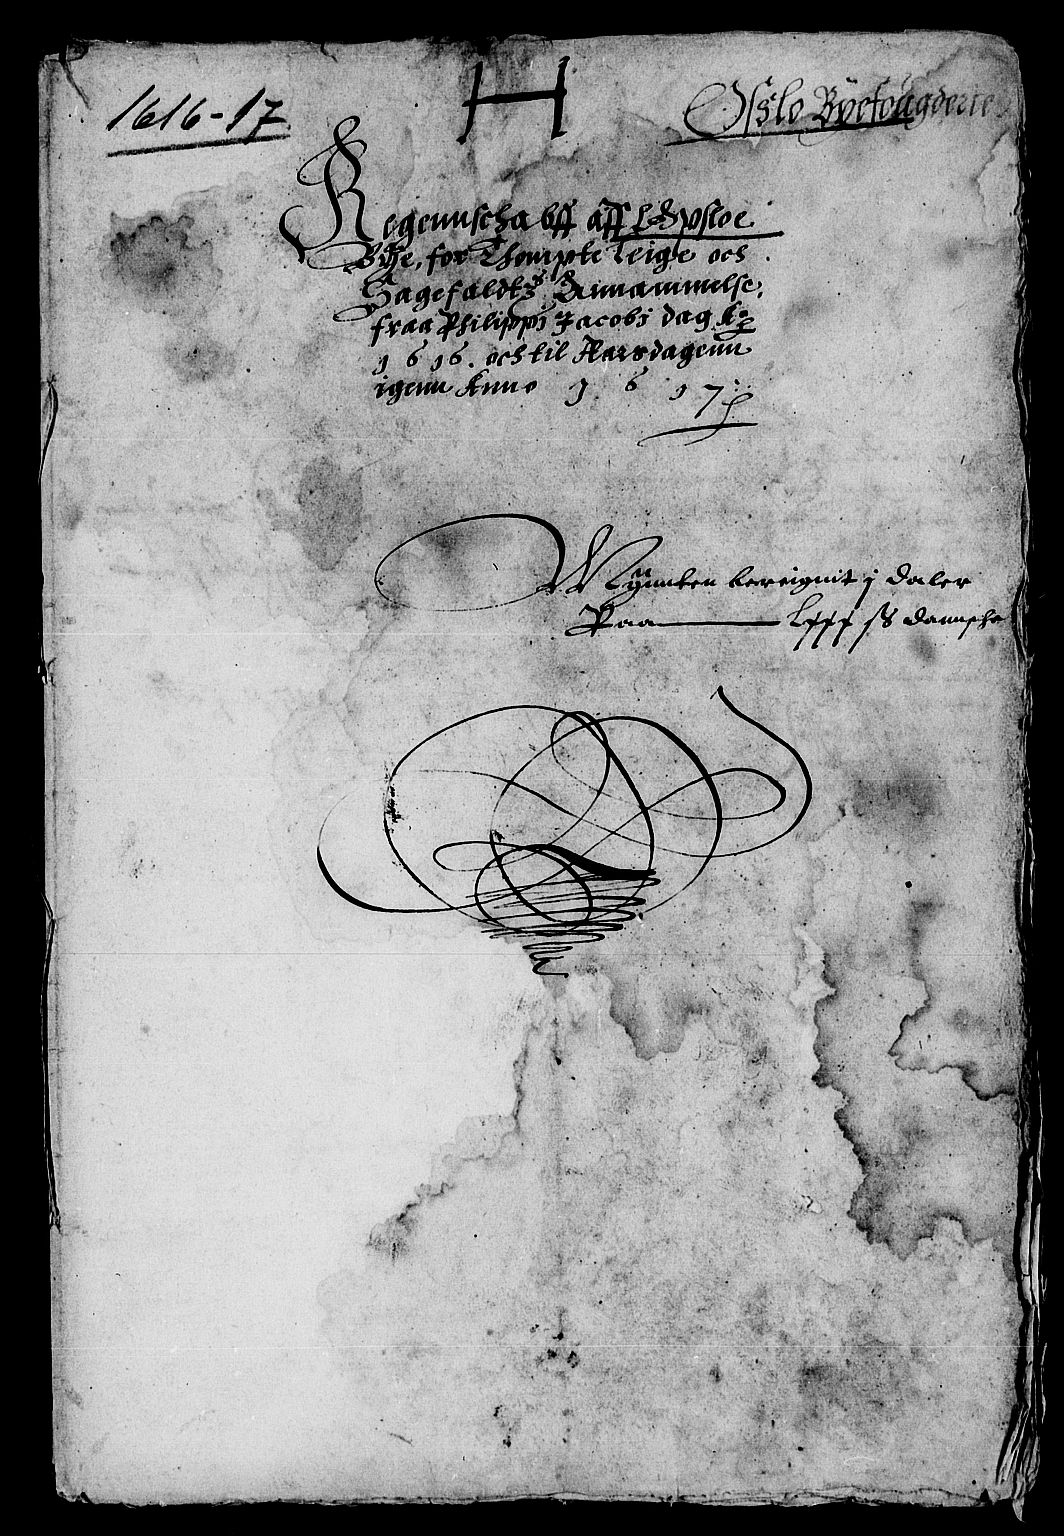 1616-17
H
Osslo Byefougderie
Regennschabff aff Opsloe
Bye, for Thompte leige och
Sagefaldtz Annammelse,
fraa Philippi Jacobi dag Ao
1616. och til Aarsdagenn
igenn Anno 1617
Mÿnnten bereignit j daler
Paa Lxxx ß dannsche